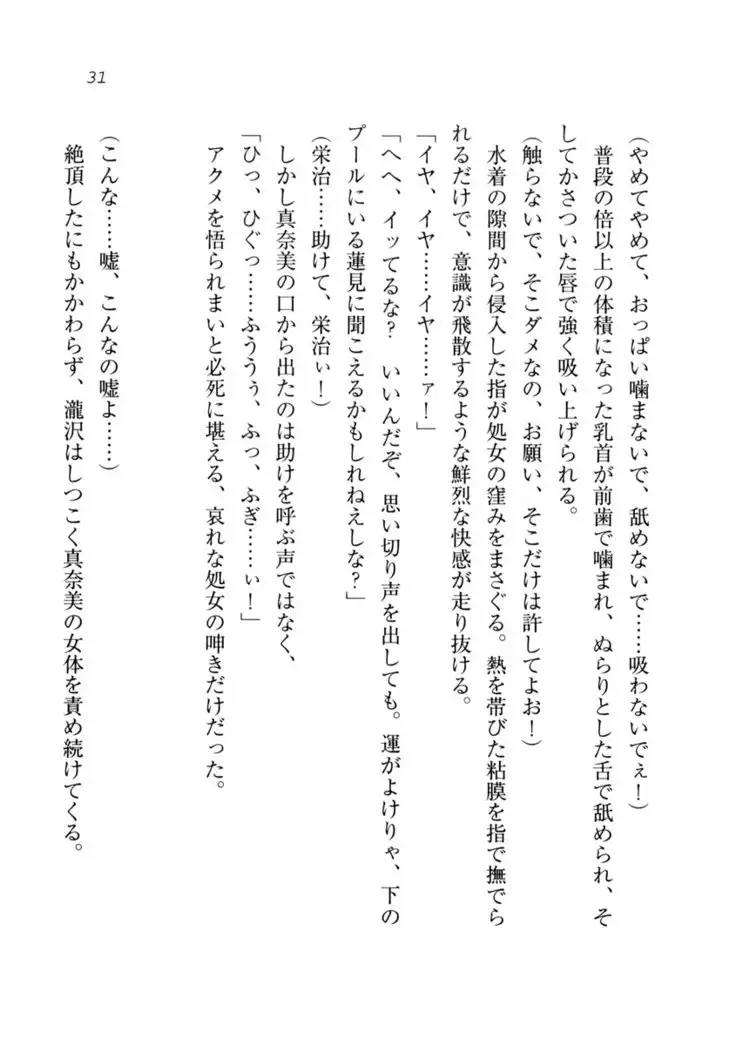 31
(やめてやめて、おっぱい噛まないで、舐めないで……吸わないでぇ!)
普段の倍以上の体積になった乳首が前歯で噛まれ、ぬらりとした舌で舐められ、そ
してかさついた唇で強く吸い上げられる。
(触らないで、そこダメなの、お願い、そこだけは許してよお!)
水着の隙間から侵入した指が処女の窪みをまさぐる。熱を帯びた粘膜を指で撫でら
れるだけで、意識が飛散するような鮮烈な快感が走り抜ける。
「イヤ、イヤ……イヤ……ァ!」
「へへ、イッてるな? いいんだぞ、思い切り声を出しても。運がよけりゃ、下の
プールにいる蓮見に聞こえるかもしれねえしな?」
(栄治……助けて、栄治ぃ!)
しかし真奈美の口から出たのは助けを呼ぶ声ではなく、
「ひっ、ひぐっ……ふううぅ、ふっ、ふぎ……ぃ!」
アクメを悟られまいと必死に堪える、哀れな処女の呻きだけだった。
(こんな……嘘、こんなの嘘よ……)
絶頂したにもかかわらず、瀧沢はしつこく真奈美の女体を責め続けてくる。